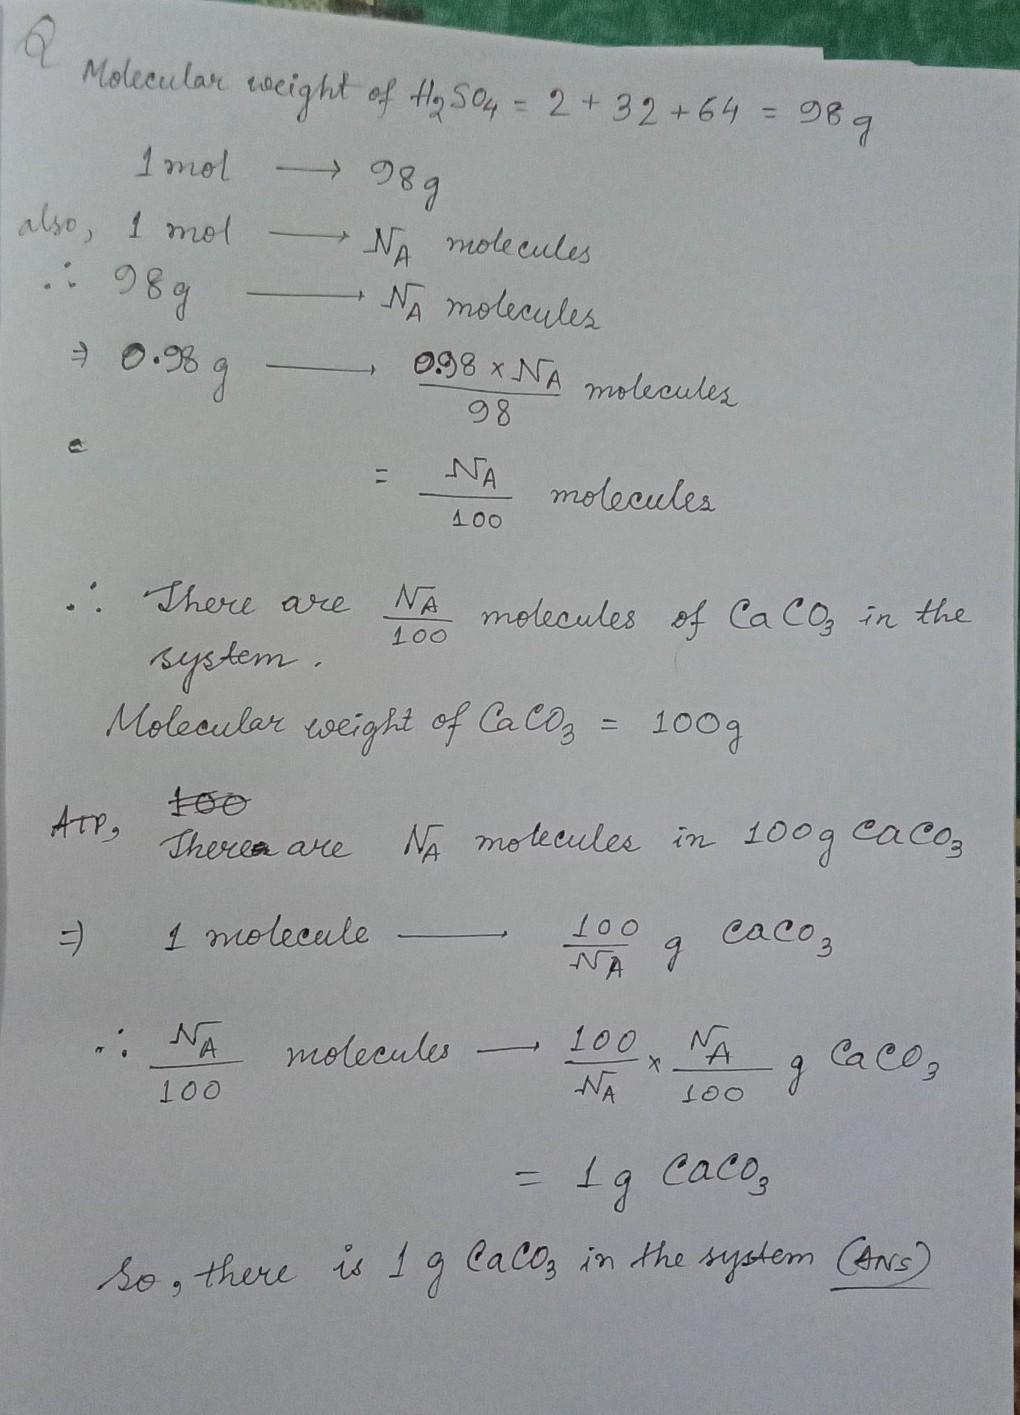 Q
Molecular weight of H₂SO₄ = 2 + 32 + 64 = 98 g
1 mol → 98g
also, 1 mol → N_A molecules
∴ 98g → N_A molecules
⇒ 0.98 g → 0.98 × N_A / 98 molecules
= N_A / 100 molecules
∴ There are N_A / 100 molecules of CaCO₃ in the
system.
Molecular weight of CaCO₃ = 100g
100
ATP, There are N_A molecules in 100g CaCO₃
⇒ 1 molecule → 100 / N_A g CaCO₃
∴ N_A / 100 molecules → 100 / N_A × N_A / 100 g CaCO₃
= 1g CaCO₃
So, there is 1 g CaCO₃ in the system (ANS)